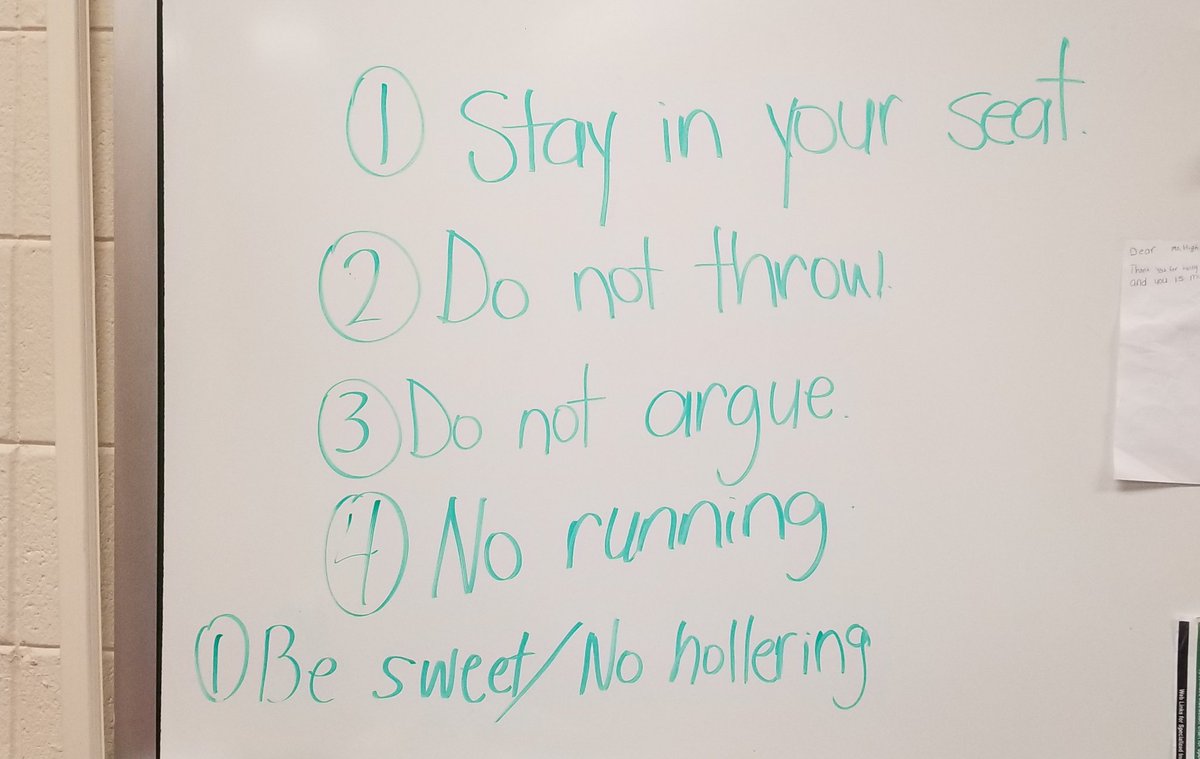 ① Stay in your seat.
② Do not throw.
③ Do not argue.
④ No running
① Be sweet/No hollering
Dear Ms. High
Thank you for
and you is m
Web Links for Specialized